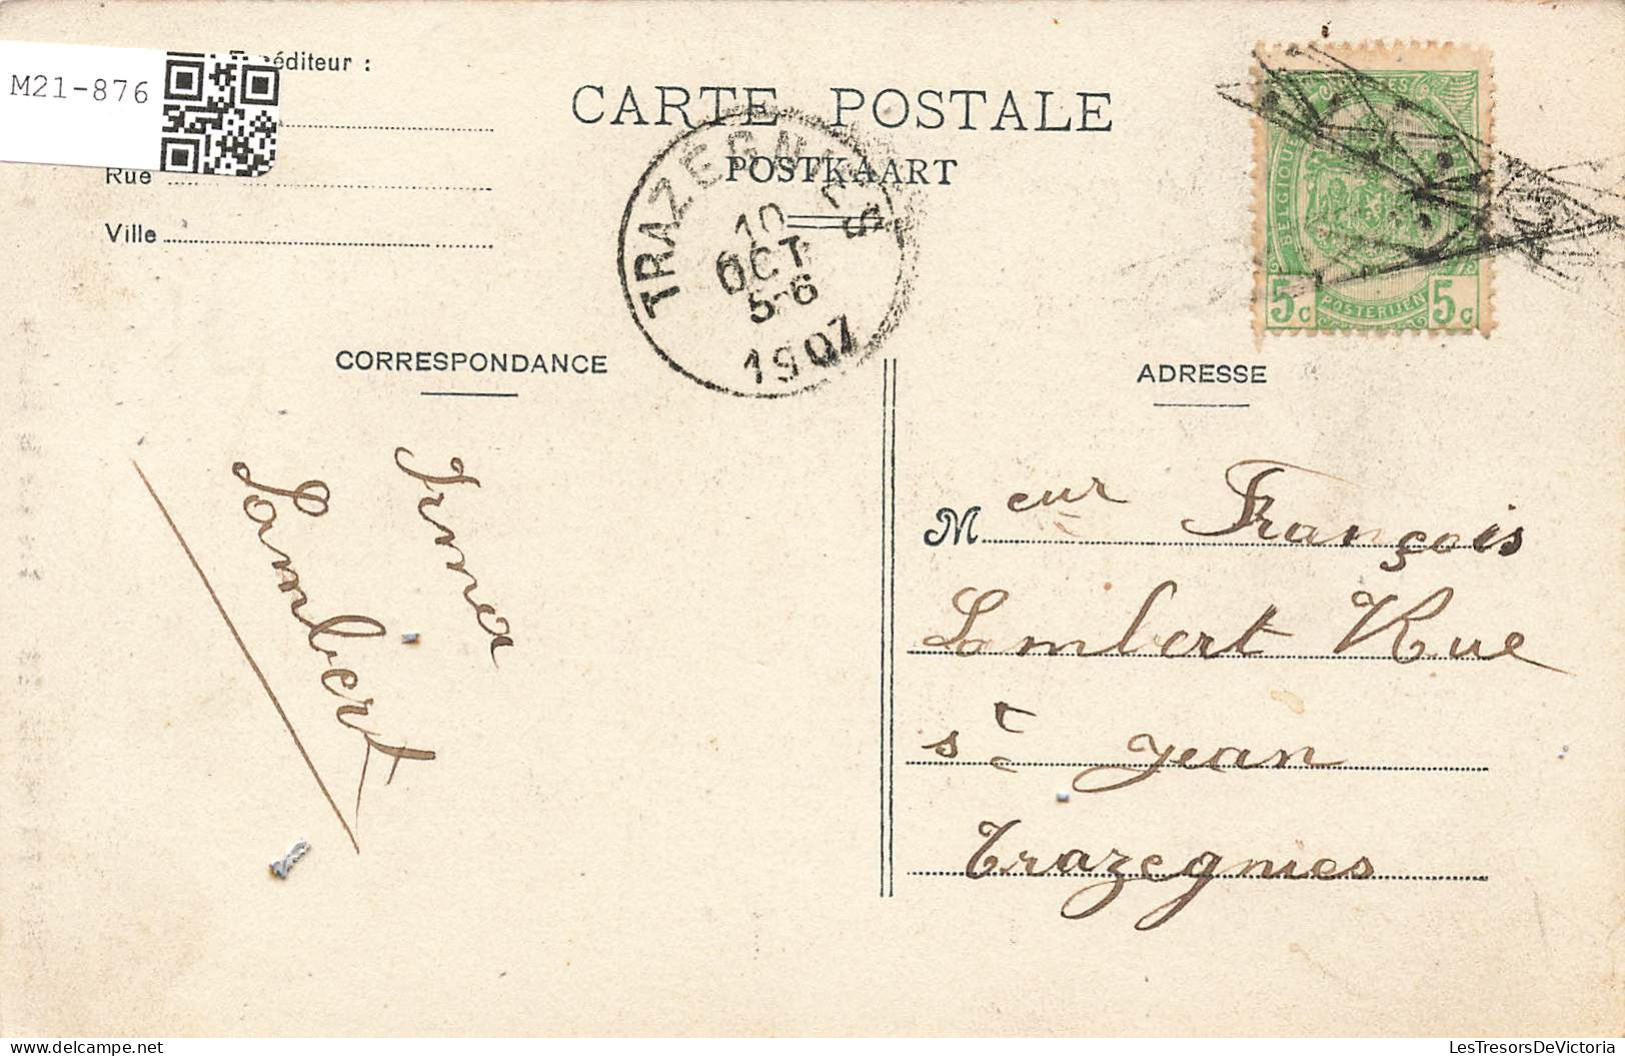 M21-876
éditeur :
Rue
Ville
CARTE POSTALE
POSTKAART
TRAZEGNIES
10
OCT
5-6
1907
BELGIQUE
5c
POSTERIJEN
5c
CORRESPONDANCE
ADRESSE
Irma
Lambert
Meur François
Lambert Rue
st jean
Trazegnies
LesTresorsDeVictoria